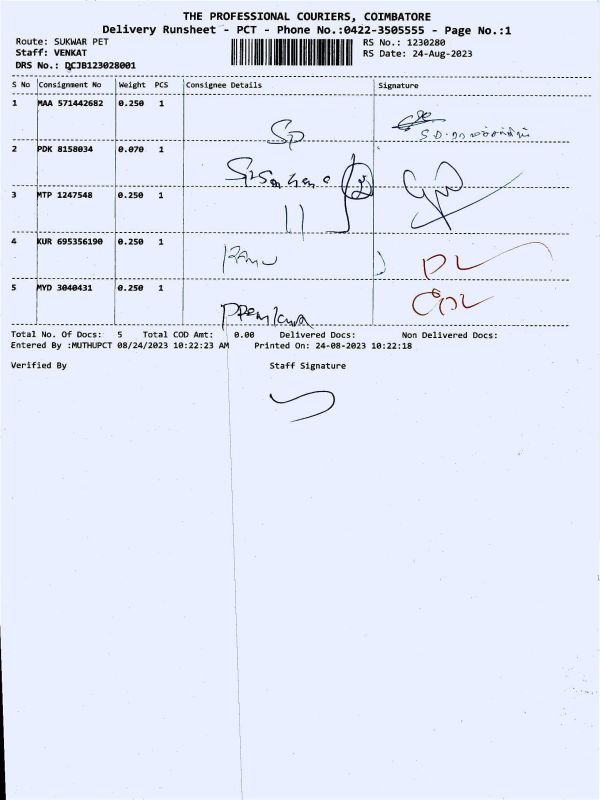 THE PROFESSIONAL COURIERS, COIMBATORE
Delivery Runsheet - PCT - Phone No.:0422-3505555 - Page No.:1
Route: SUKWAR PET RS No.: 1230280
Staff: VENKAT RS Date: 24-Aug-2023
DRS No.: DCJB123028001
S No Consignment No Weight PCS Consignee Details Signature
1 MAA 571442682 0.250 1
SP
2 PDK 8158034 0.070 1
3 MTP 1247548 0.250 1
4 KUR 695356190 0.250 1
Ramu
5 MYD 3040431 0.250 1
Total No. Of Docs: 5 Total COD Amt: 0.00 Delivered Docs: Non Delivered Docs:
Entered By :MUTHUPCT 08/24/2023 10:22:23 AM Printed On: 24-08-2023 10:22:18
Verified By Staff Signature